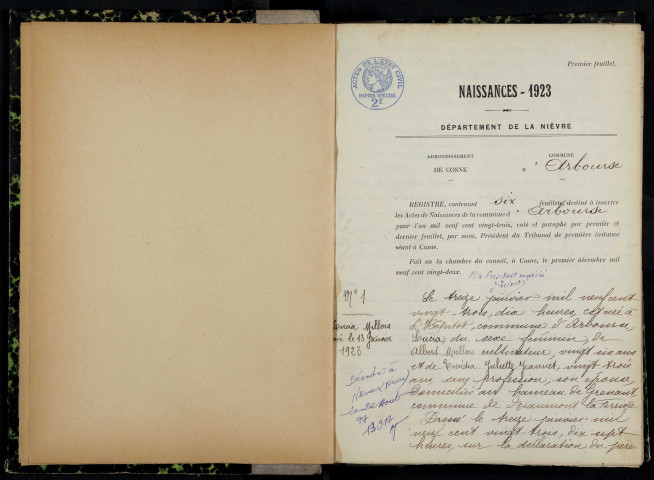 Premier feuillet.
ACTES DE L'ÉTAT CIVIL
PAPIER SPÉCIAL
2F
NAISSANCES - 1923
DÉPARTEMENT DE LA NIÈVRE
ARRONDISSEMENT
DE COSNE
COMMUNE
d'Arbourse
REGISTRE, contenant six feuillets, destiné à inscrire
les Actes de Naissances de la commune d'Arbourse
pour l'an mil neuf cent vingt-trois, coté et paraphé par premier et
dernier feuillet, par nous, Président du Tribunal de première instance
séant à Cosne.
Fait en la chambre du conseil, à Cosne, le premier décembre mil
neuf cent vingt-deux.
N° 1
Millois
née le 13 Janvier
1923
Décédée à
le
Le treize janvier mil neuf cent
vingt-trois, dix heures, est née à
commune d'Arbourse,
du sexe féminin, de
Albert Millois cultivateur, vingt six ans
et de Juliette Jeannet, vingt trois
ans, sans profession, son épouse
Domiciliés au hameau de Grenant
commune de Beaumont la Ferrière
Dressé le treize janvier mil
neuf cent vingt trois, dix sept
heures, sur la déclaration du père